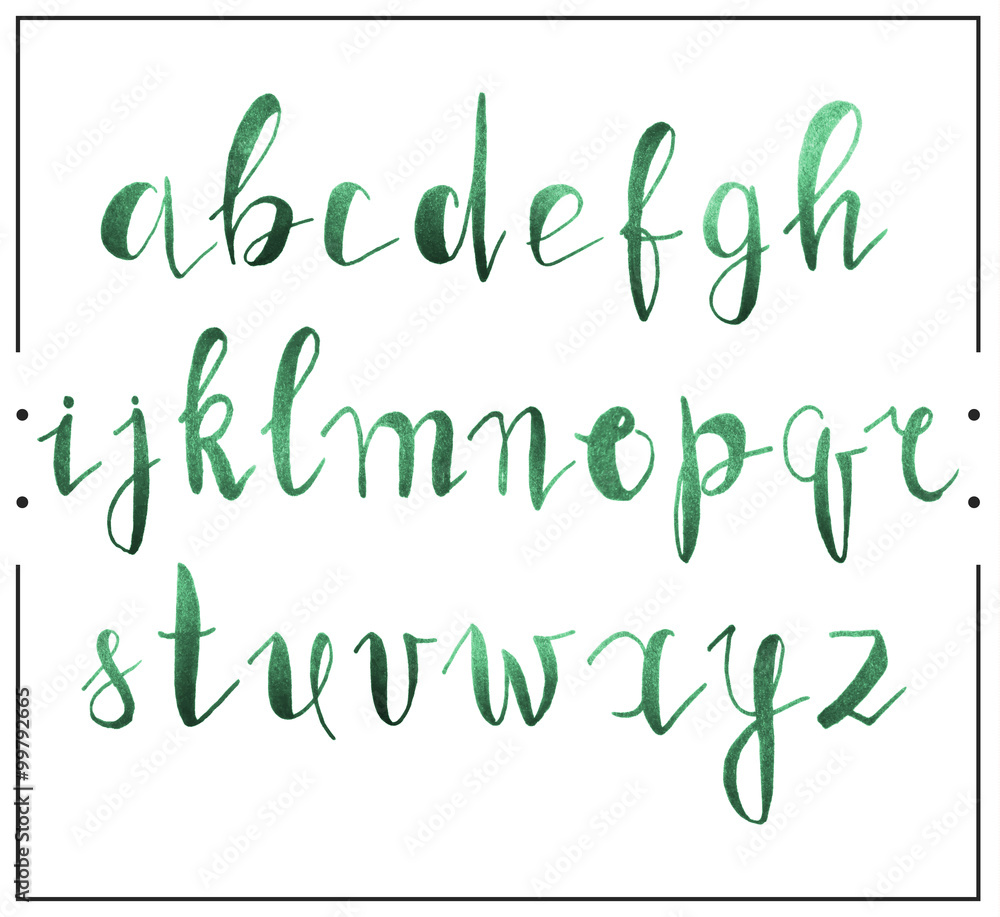 abcdefgh
ijklmnopqr
stuvwxyz
Adobe Stock | #99792665